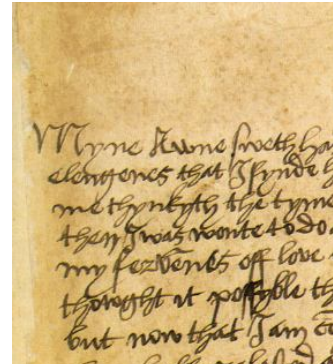 Myne Awne Sweth ha
elengenes that I fynde h
me thynkyth the tyme
then I was wonte to do
my fervēnes off love
thowght it possyble th
but now that I am cō